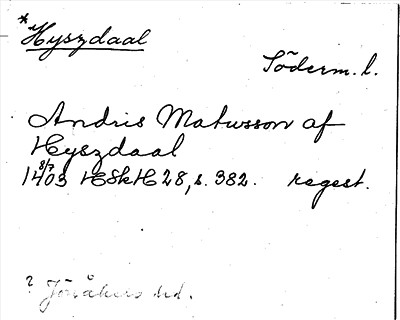 * Hyszdaal
Söderm. l.
Andris Matusson af
Hyszdaal
14 8/7 03 HSkH 28, s. 382. regest.
? Jönåkers hd.